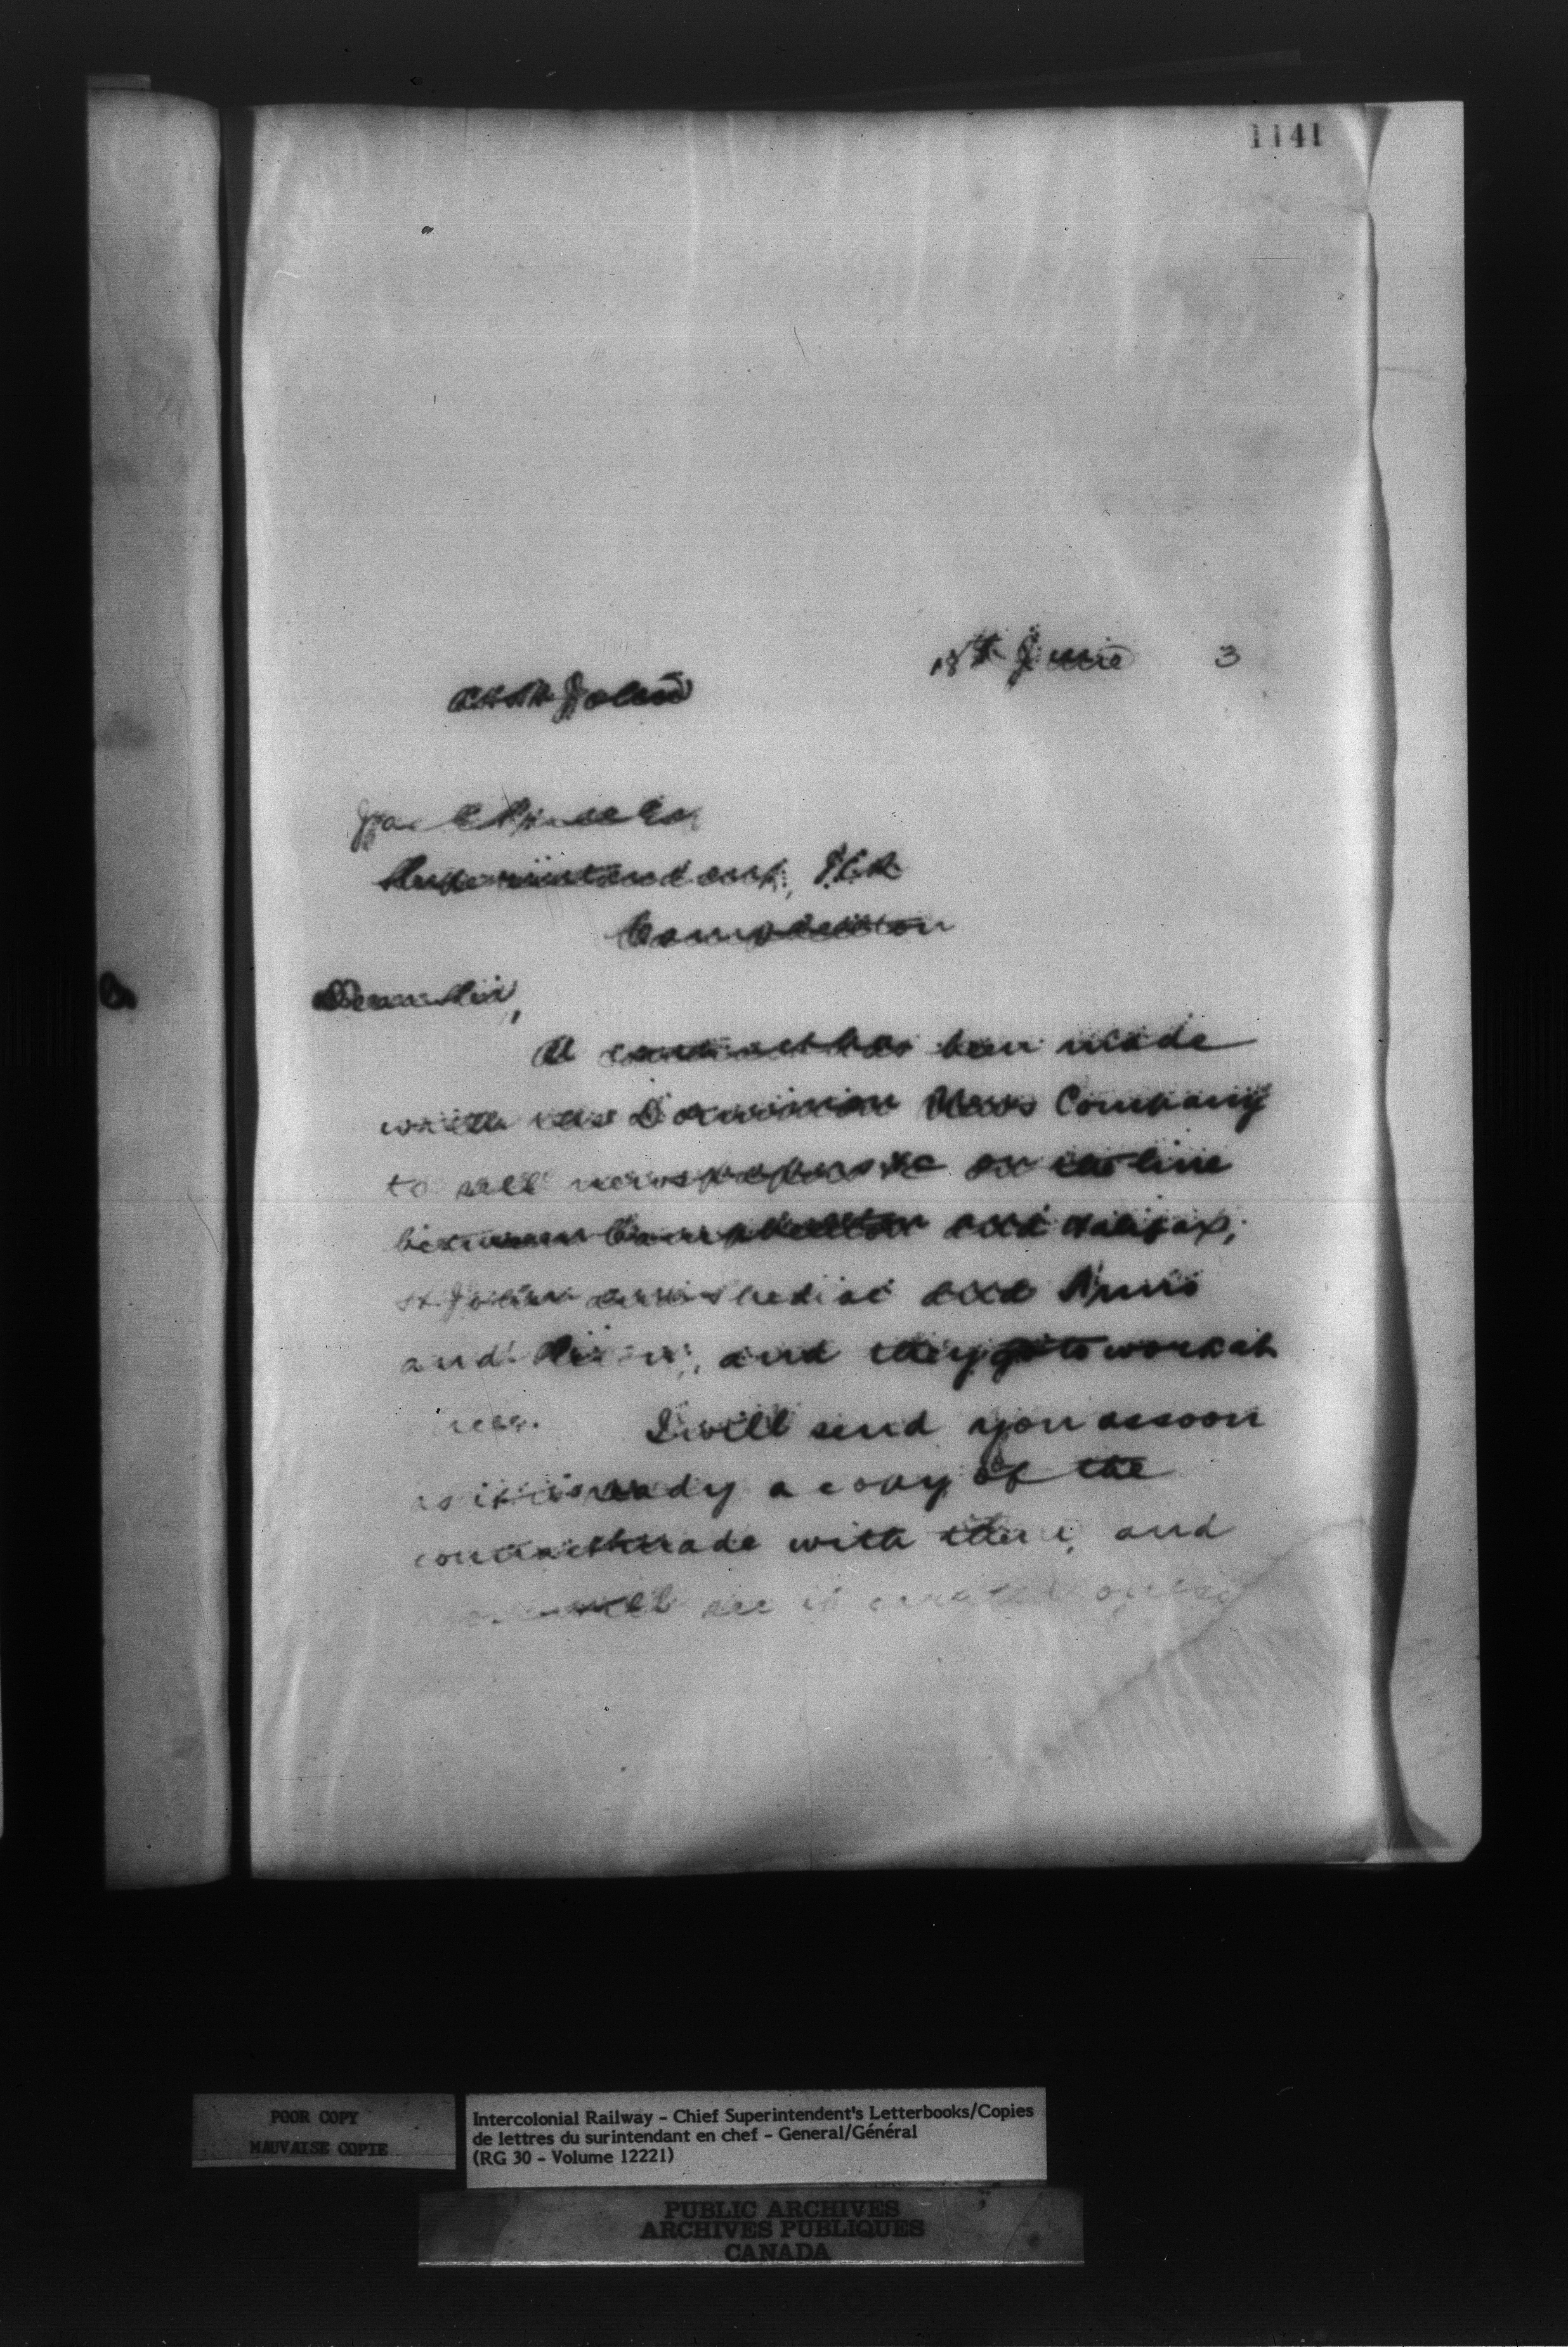 1141
18th June 3
Superintendent, I.C.R.
Campbellton
Dear Sir,
A contract has been made
with the Dominion News Company
to sell newspapers &c on the line
between Campbellton and Halifax,
St. John and Shediac and Truro
and and they go to work at
I will send you as soon
as it is ready a copy of the
contract made with them, and
will see it
POOR COPY
MAUVAISE COPIE
Intercolonial Railway - Chief Superintendent's Letterbooks/Copies
de lettres du surintendant en chef - General/Général
(RG 30 - Volume 12221)
PUBLIC ARCHIVES
ARCHIVES PUBLIQUES
CANADA